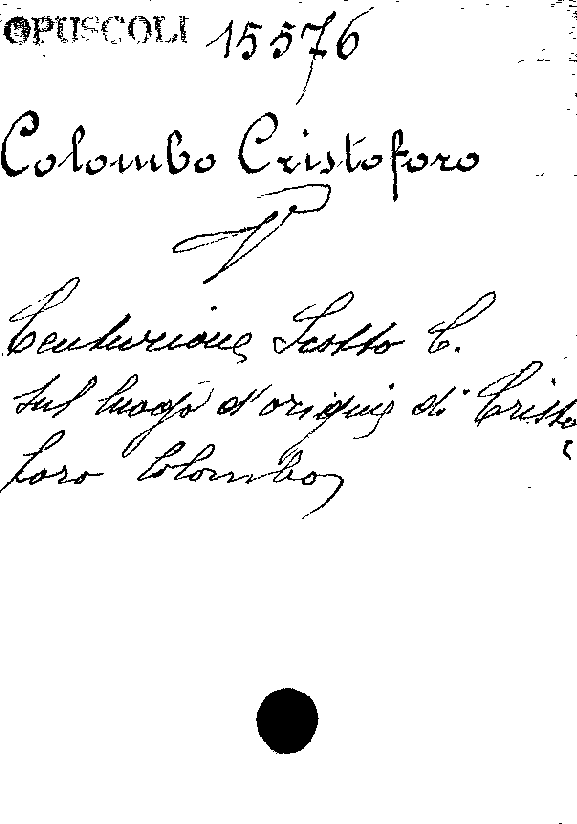 OPUSCOLI 15576
Colombo Cristoforo
V
Centurione Scotto C.
Sul luogo d'origine di Cristo
foro Colombo